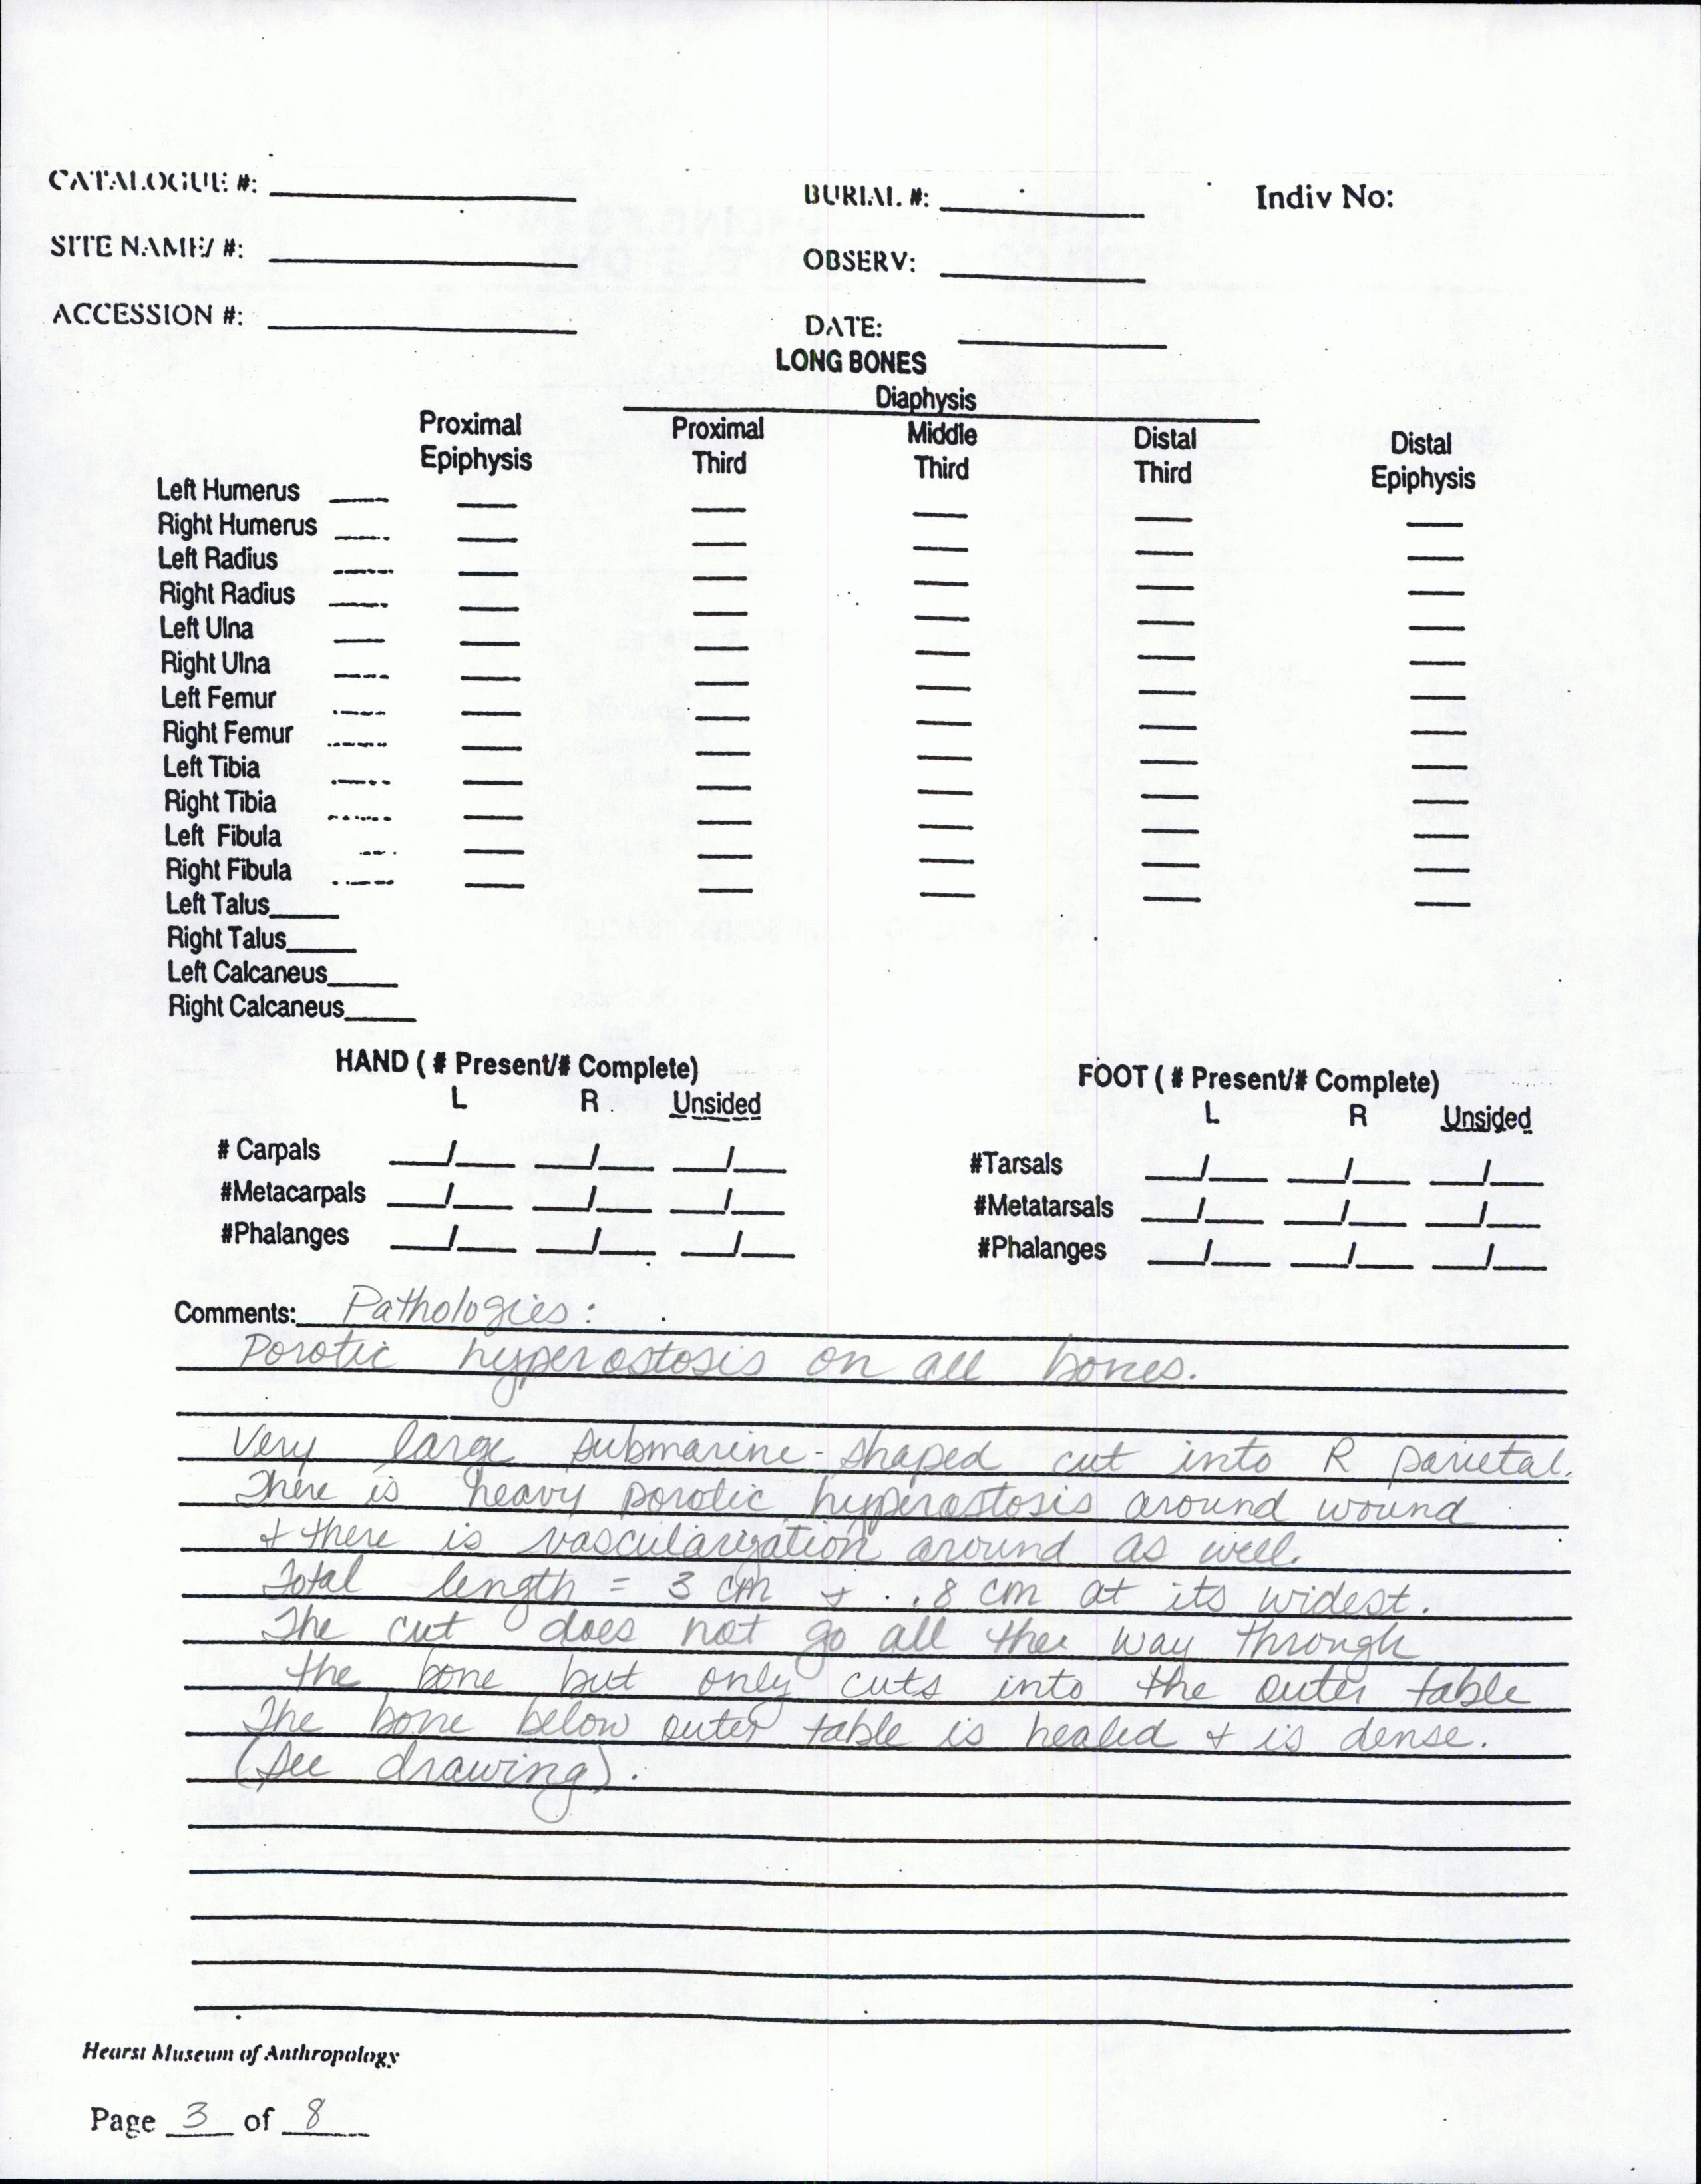 CATALOGUE #: ______ BURIAL #: ______ Indiv No:
SITE NAME/ #: ______ OBSERV: ______
ACCESSION #: ______ DATE: ______
LONG BONES
Diaphysis
Proximal Epiphysis Proximal Third Middle Third Distal Third Distal Epiphysis
Left Humerus
Right Humerus
Left Radius
Right Radius
Left Ulna
Right Ulna
Left Femur
Right Femur
Left Tibia
Right Tibia
Left Fibula
Right Fibula
Left Talus
Right Talus
Left Calcaneus
Right Calcaneus
HAND ( # Present/# Complete)
L R Unsided
# Carpals ___/___ ___/___ ___/___
#Metacarpals ___/___ ___/___ ___/___
#Phalanges ___/___ ___/___ ___/___
FOOT ( # Present/# Complete)
L R Unsided
#Tarsals ___/___ ___/___ ___/___
#Metatarsals ___/___ ___/___ ___/___
#Phalanges ___/___ ___/___ ___/___
Comments: Pathologies:
Porotic hyperostosis on all bones.
Very large submarine-shaped cut into R parietal.
There is heavy porotic hyperostosis around wound
+ there is vascularization around as well.
Total length = 3 cm + .8 cm at its widest.
The cut does not go all thee way through
the bone but only cuts into the outer table
The bone below outer table is healed + is dense.
(see drawing).
Hearst Museum of Anthropology
Page 3 of 8